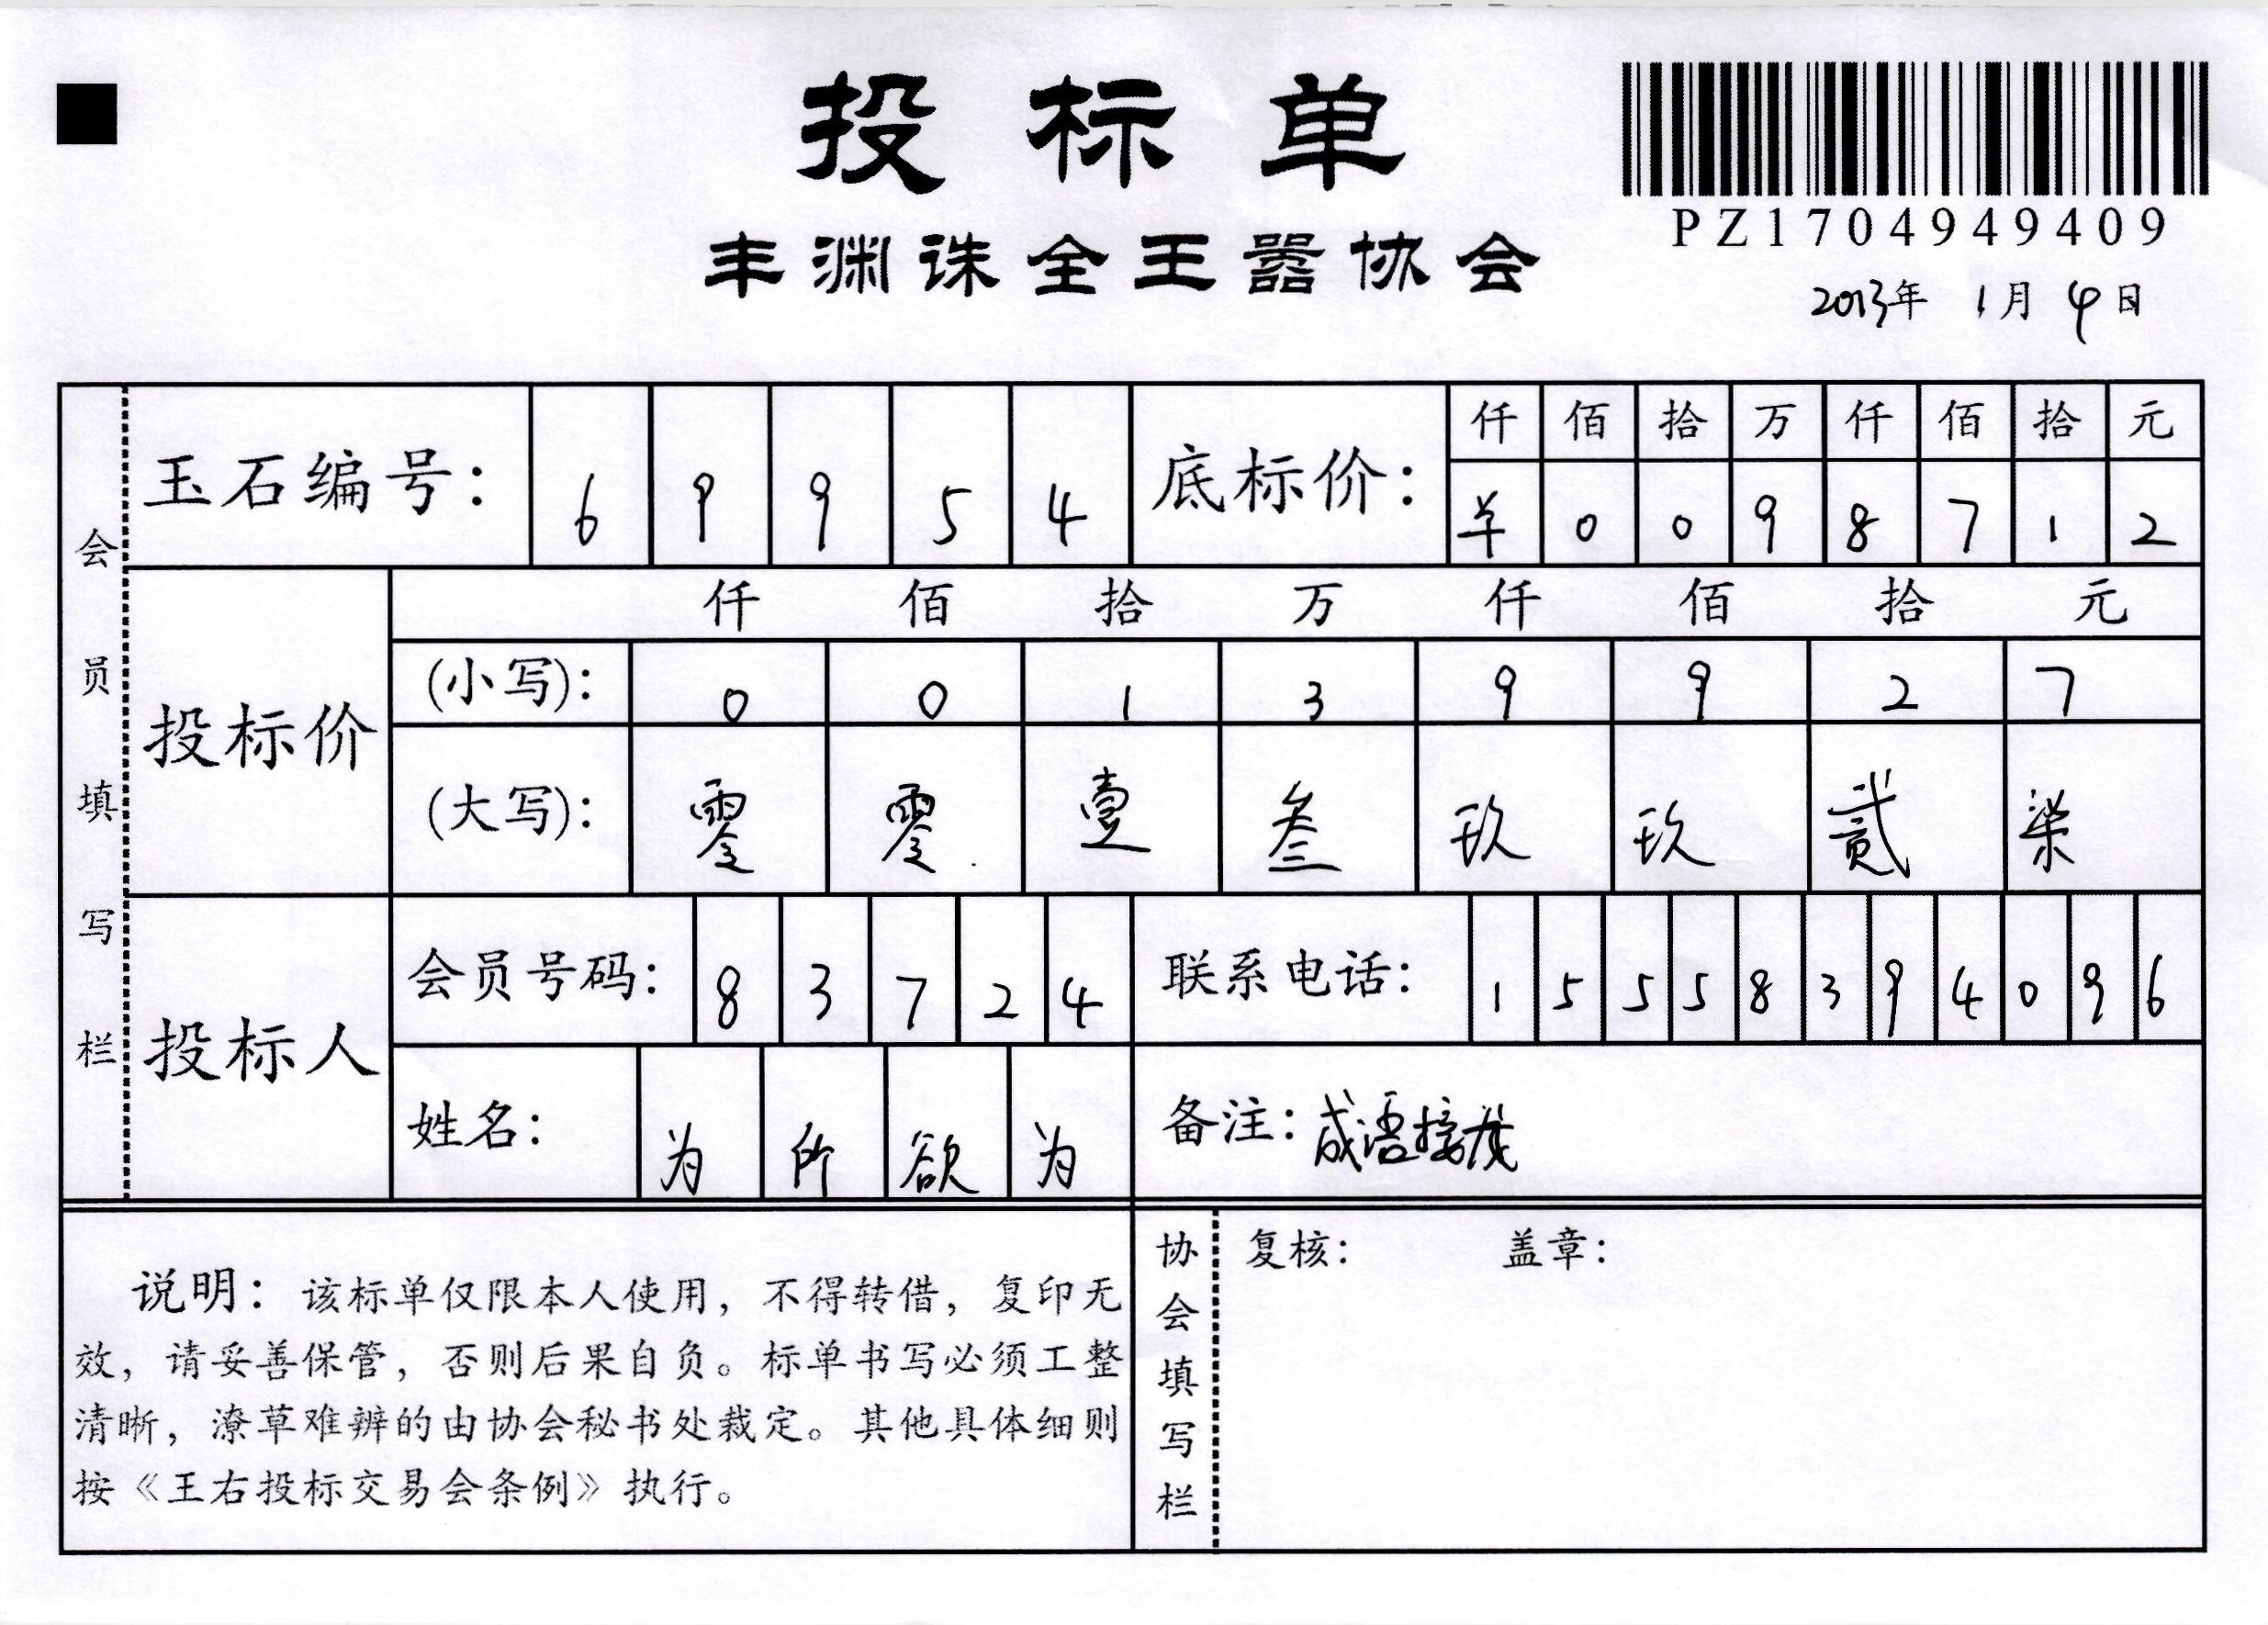 投标单
丰渊诛全王嚣协会
PZ1704949409
2013年 1月 4日
会员填写栏
玉石编号: 69954
底标价: 仟佰拾万仟佰拾元
羊0098712
投标价
仟佰拾万仟佰拾元
(小写): 00139927
(大写): 零零壹叁玖玖贰柒
投标人
会员号码: 83724
联系电话: 15558394096
姓名: 为所欲为
备注: 成语接龙
说明: 该标单仅限本人使用，不得转借，复印无
效，请妥善保管，否则后果自负。标单书写必须工整
清晰，潦草难辨的由协会秘书处裁定。其他具体细则
按《王右投标交易会条例》执行。
协会填写栏
复核: 盖章: